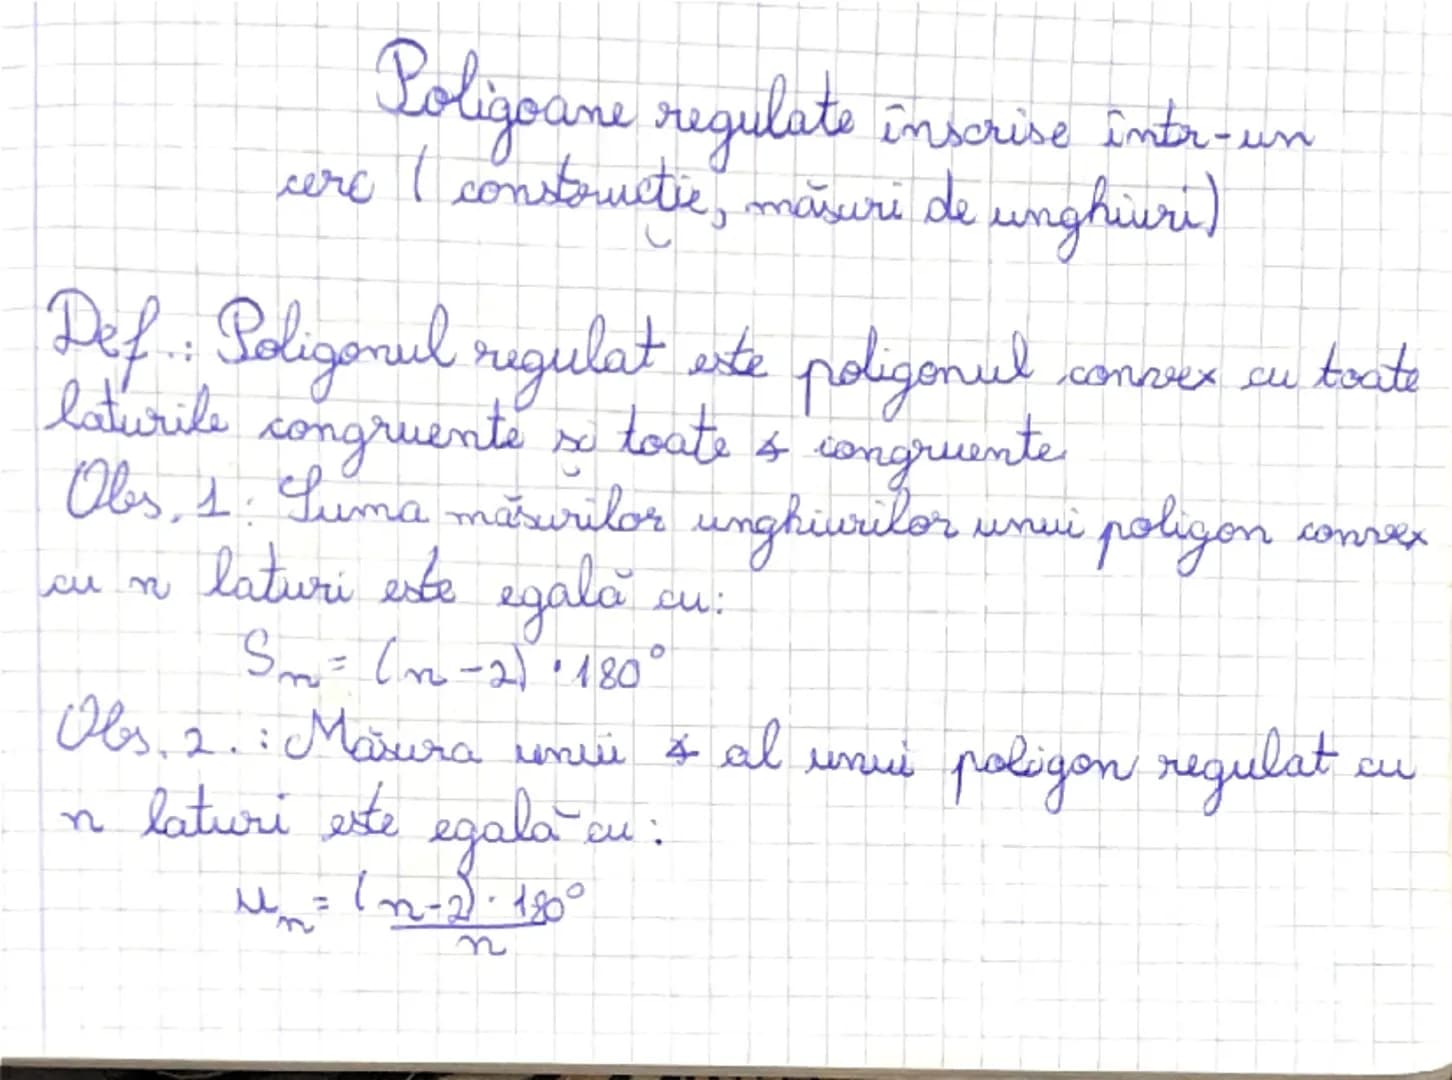 Poligoane regulate înscrise într-un
cerc (construcție, măsuri de unghiuri)
Def.: Poligonul regulat este poligonul convex cu toate
laturile congruente și toate ∢ congruente
Obs. 1: Suma măsurilor unghiurilor unui poligon convex
cu n laturi este egală cu:
Sn = (n-2) · 180°
Obs. 2.: Măsura unui ∢ al unui poligon regulat cu
n laturi este egală cu:
un = (n-2) · 180°
n